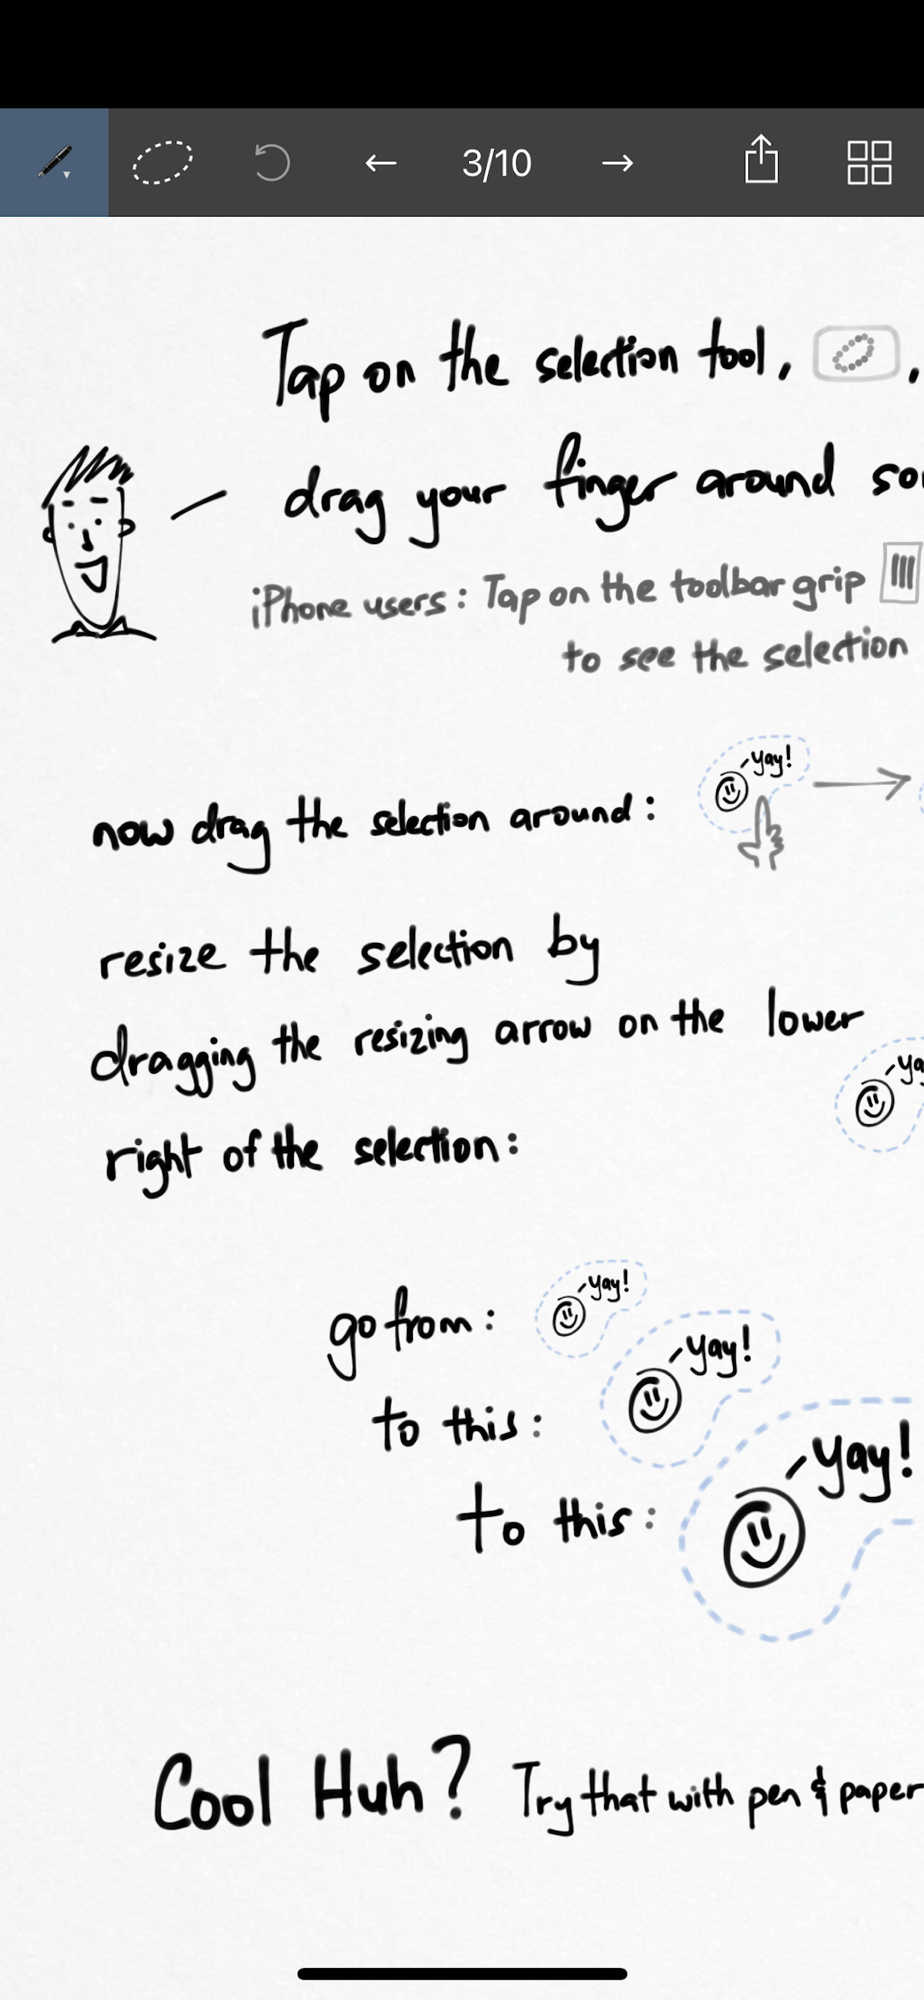 3/10
Tap on the selection tool, ,
drag your finger around so
iPhone users: Tap on the toolbar grip
to see the selection
yay!
now drag the selection around:
resize the selection by
dragging the resizing arrow on the lower
ya
right of the selection:
yay!
go from:
yay!
to this:
yay!
to this:
Cool Huh? Try that with pen & paper